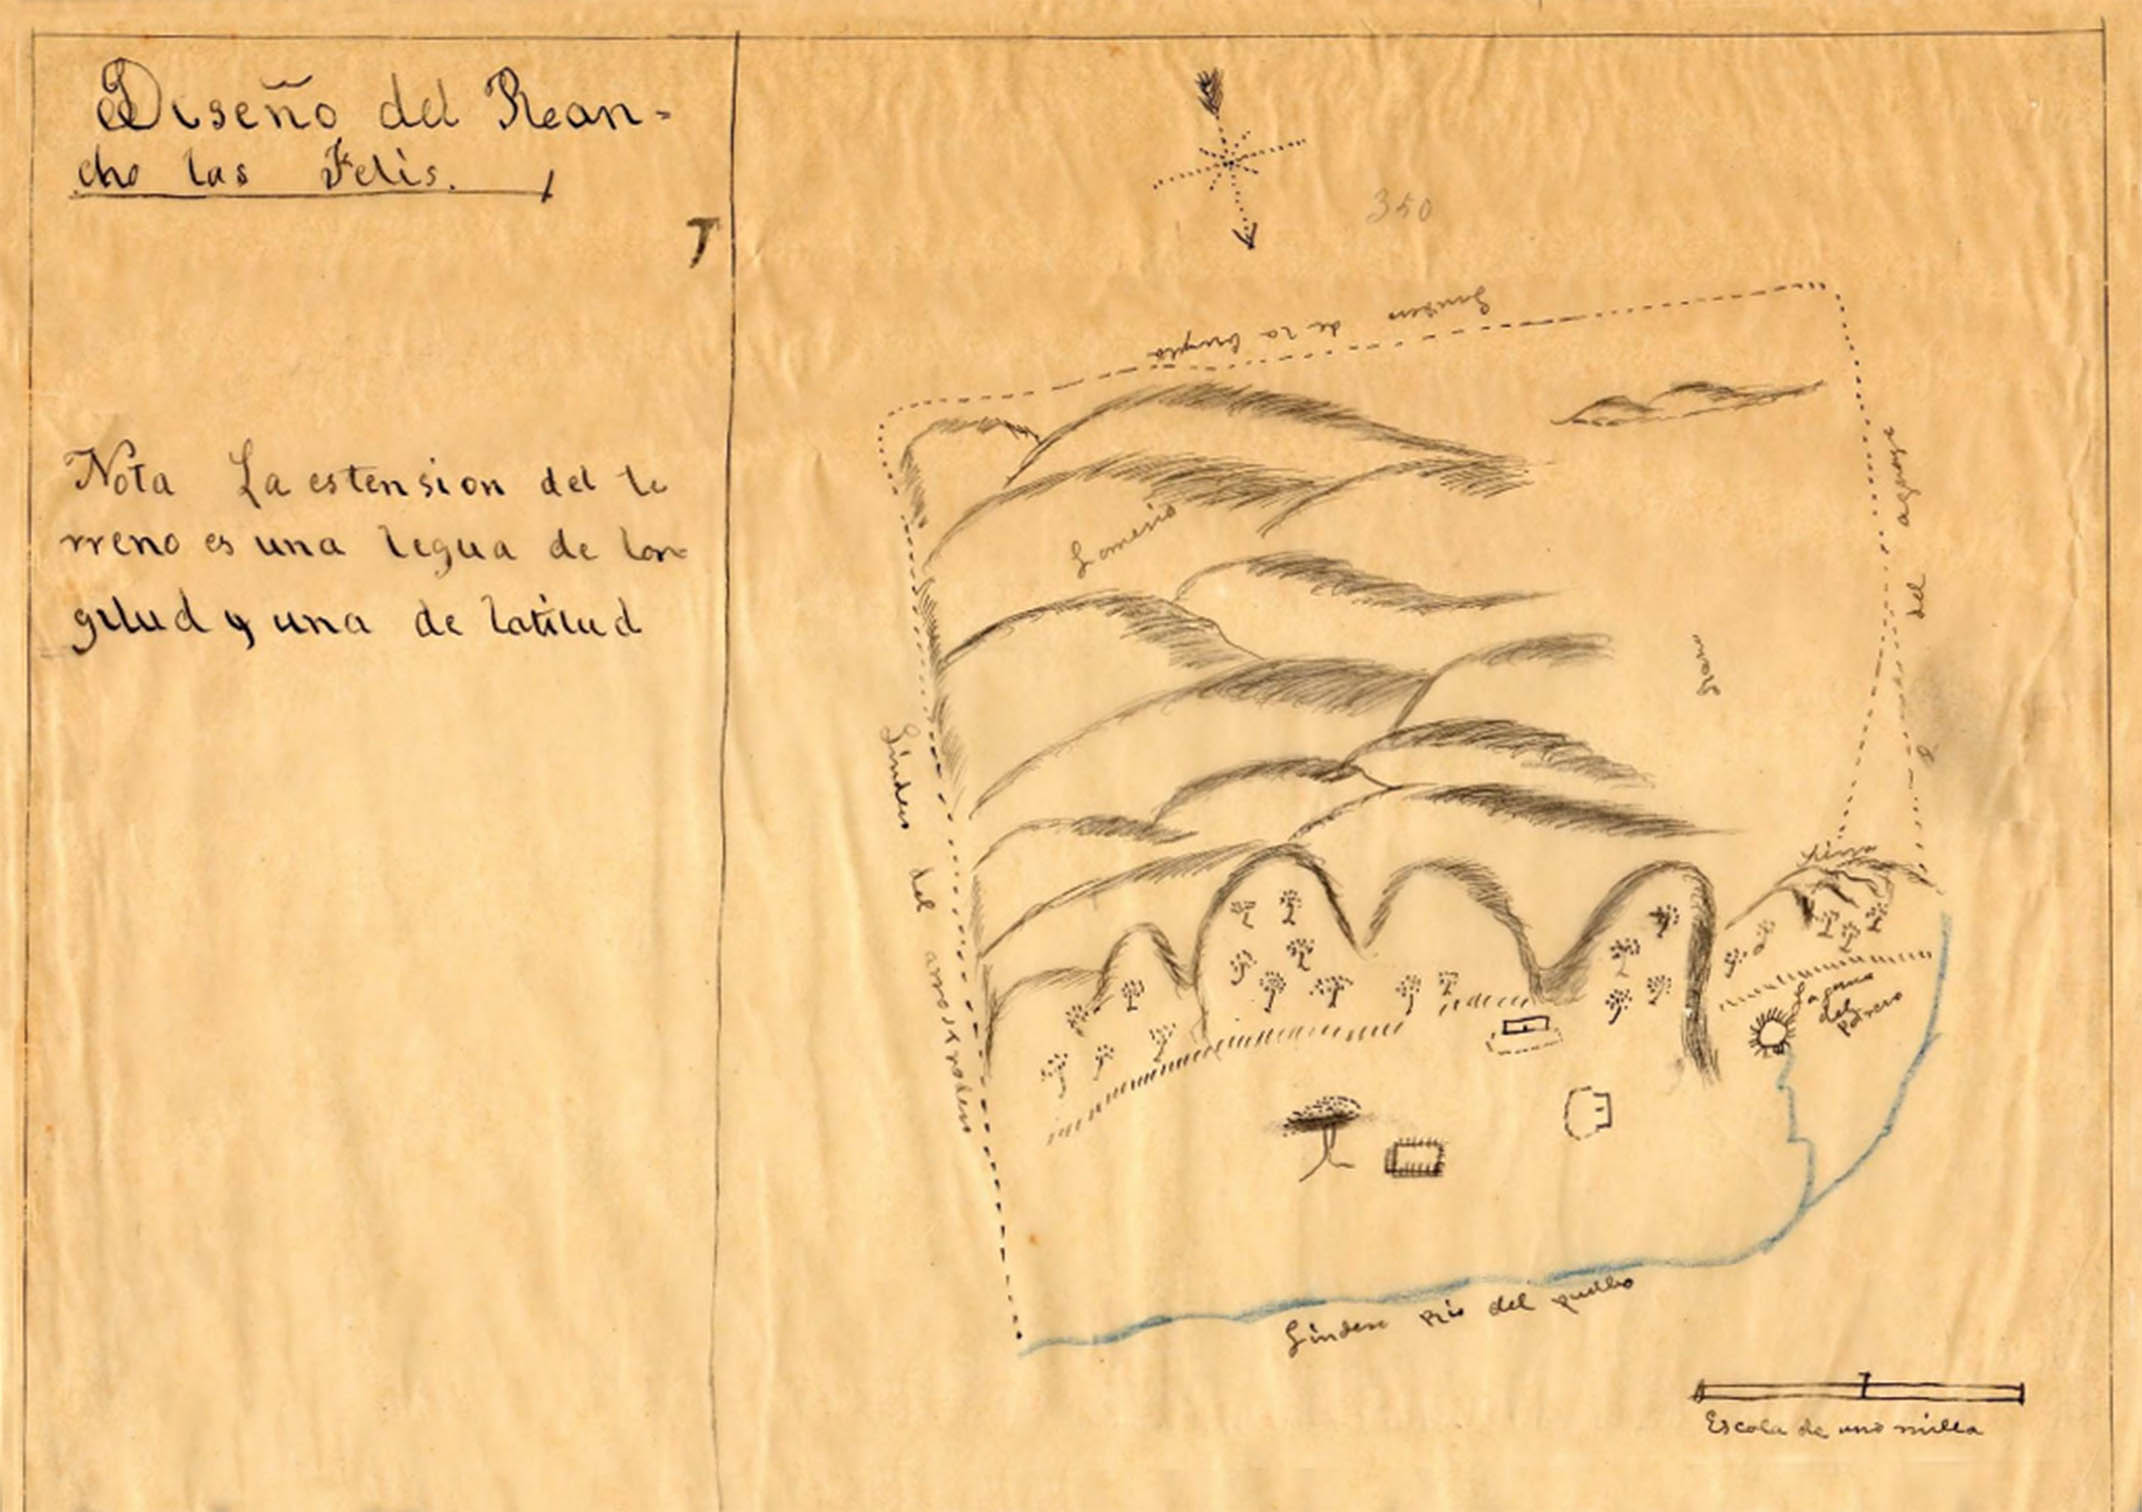 Diseño del Rean-
cho las Felis.
Nota La estension del te
rreno es una legua de lon
gitud y una de latitud
350
Lindero de la
Lomerio
Llano
del
Lindero del
Laguna
del
Potrero
Lindero Rio del pueblo
Escala de una milla